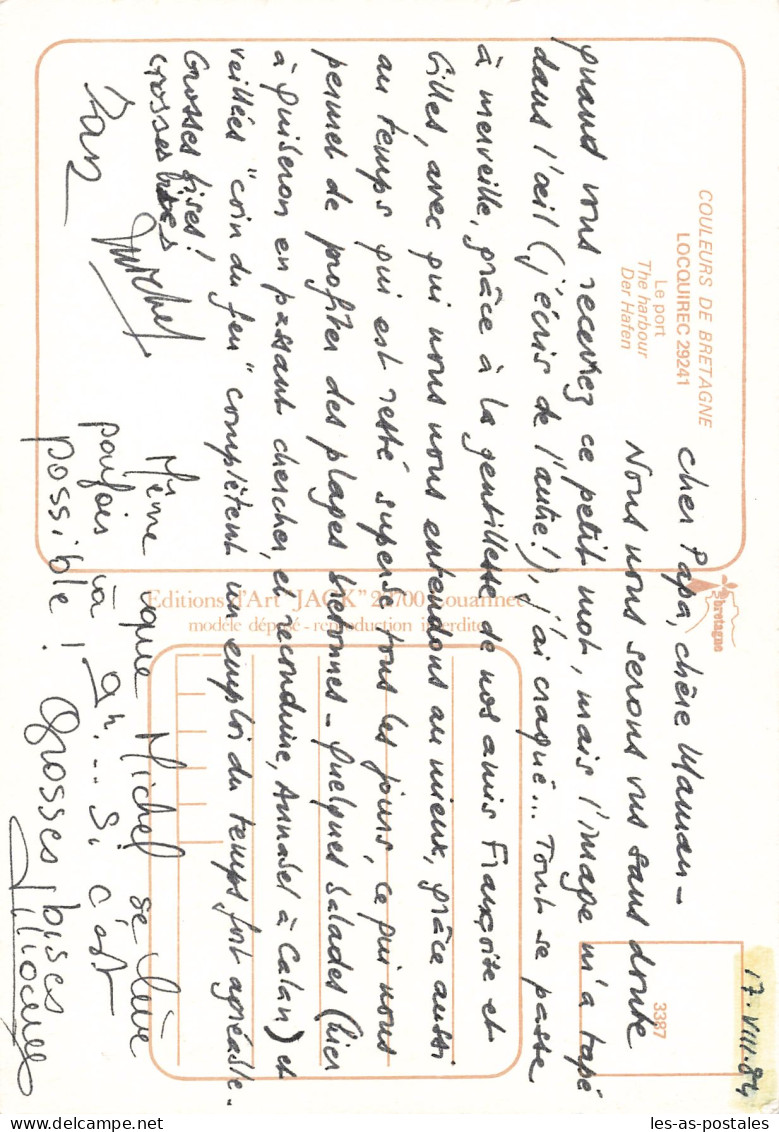 17.VIII.84
cher Papa, chère Maman -
Nous nous serons vus sans doute
quand vous recevrez ce petit mot, mais l'image m'a tapé
dans l'œil (j'écris de l'autre!), j'ai craqué... Tout se passe
à merveille, grâce à la gentillesse de nos amis Françoise et
Gilles, avec qui nous nous entendons au mieux, grâce aussi
au temps qui est resté superbe tous les jours, ce qui nous
permet de profiter des plages bretonnes - quelques balades (hier
à Quiberon en passant chercher, et reconduire, Annabel à Calan) et
veillées "coin du feu" complètent un emploi du temps fort agréable.
Grosses bises!
Grosses bises
Michel
Même que Michel se lève
parfois à 9h... Si c'est
possible! Grosses bises
COULEURS DE BRETAGNE
LOCQUIREC 29241
Le port
The harbour
Der Hafen
bretagne
Editions d'Art "JACK" Louannec
modèle déposé - reproduction interdite
3387
les-as-postales